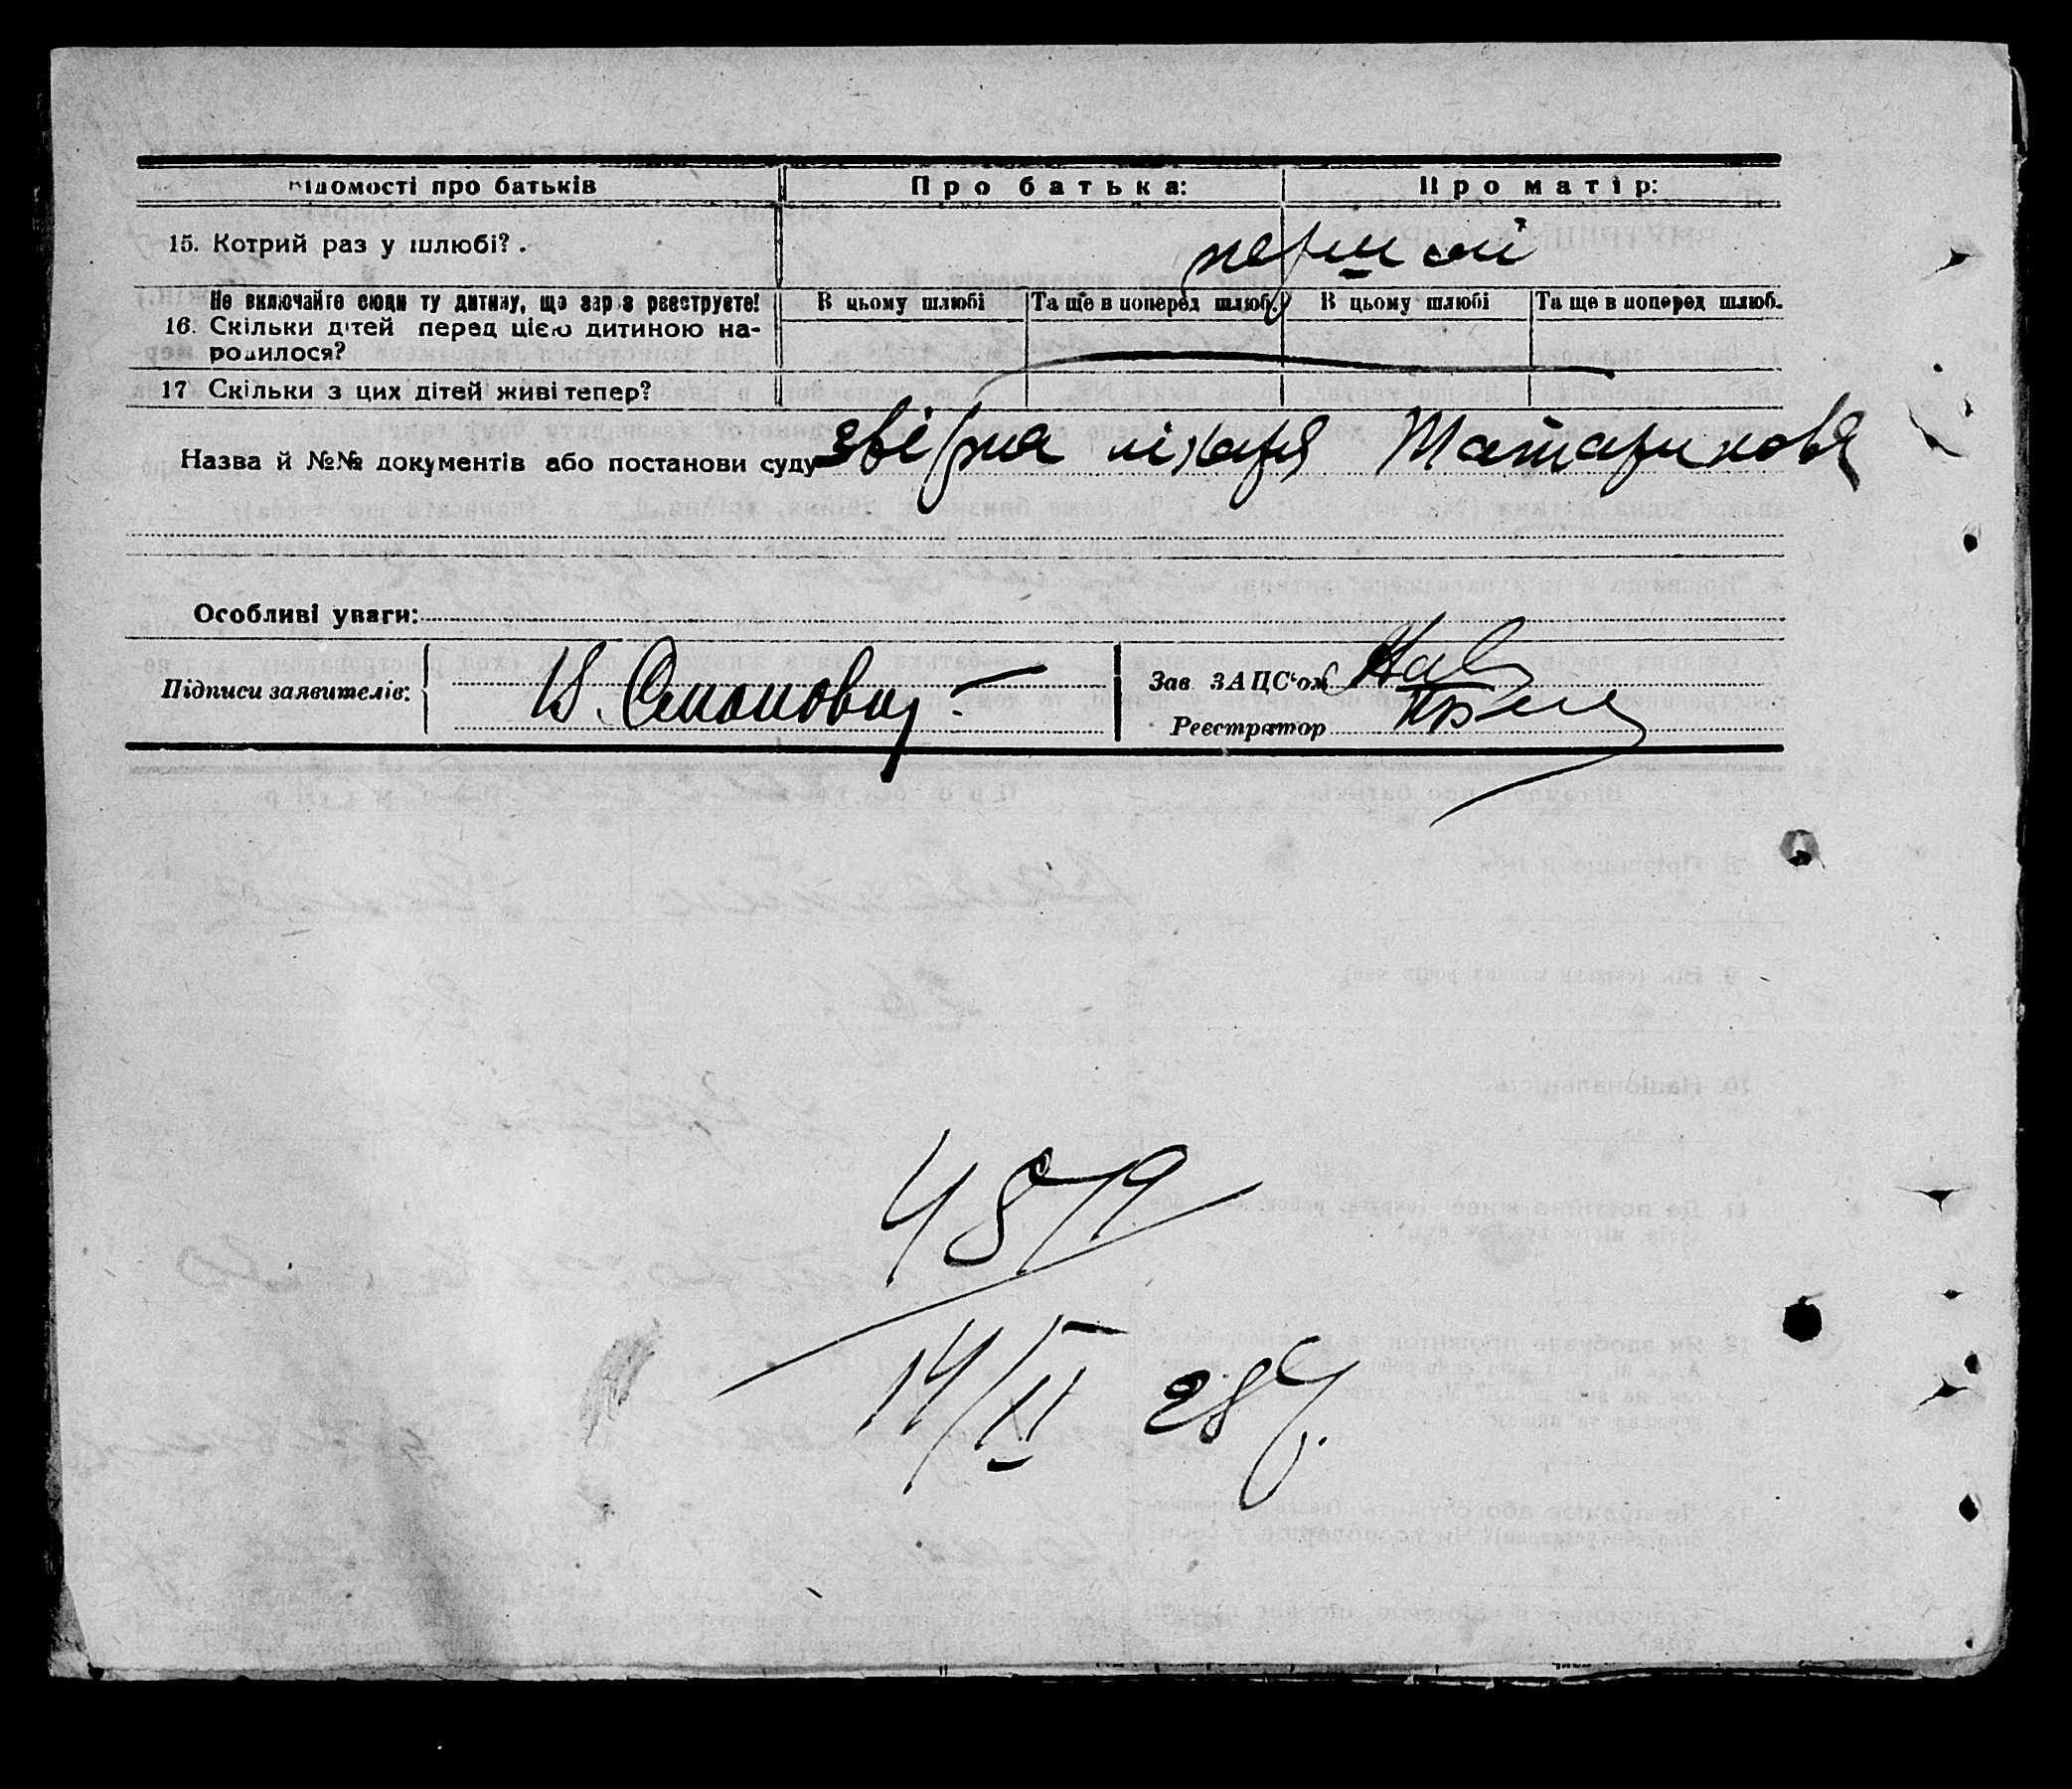 відомості про батьків Про батька: Про матір:
15. Котрий раз у шлюбі? . перший
Не включайте сюди ту дитину, що зараз реєструєте! В цьому шлюбі Та ще в поперед шлюб. В цьому шлюбі Та ще в поперед шлюб.
16. Скільки дітей перед цією дитиною на-
родилося?
17 Скільки з цих дітей живі тепер?
Назва й №№ документів або постанови суду лікаря Татаринова
Особливі уваги:
Підписи заявителів: Зав ЗАЦС'ом
Реєстратор
4879
14/II 28 р.